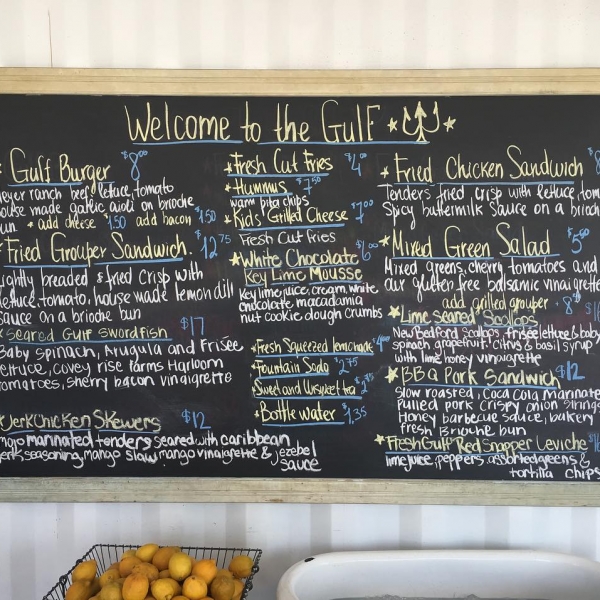 Welcome to the Gulf
Gulf Burger $8.00
Meyer ranch beef, lettuce, tomato
house made garlic aioli on brioche
bun add cheese $1.50 add bacon $1.50
Fried Grouper Sandwich $12.75
Lightly breaded & fried crisp with
lettuce, tomato, house made lemon dill
sauce on a brioche bun
Seared Gulf Swordfish $17
Baby spinach, Arugula and Frisée
lettuce, covey rise farms Harloom
tomatoes, sherry bacon vinaigrette
Jerk Chicken Skewers $12
mojo marinated tenders seared with caribbean
jerk seasoning, mango slaw, mango vinaigrette & jezebel
sauce
Fresh Cut Fries $4.00
Hummus $7.50
warm pita chips
Kids Grilled Cheese $7.00
Fresh Cut fries
White Chocolate $6.00
Key Lime Mousse
Key lime juice, cream, white
chocolate macadamia
nut cookie dough crumbs
Fresh Squeezed lemonade $4.00
Fountain Soda $2.75
Sweet and Unsweet tea
Bottle water $1.35
Fried Chicken Sandwich $8
Tenders fried crisp with lettuce, tom
Spicy buttermilk sauce on a brioch
Mixed Green Salad $5.00
Mixed greens, cherry tomatoes and
our gluten free balsamic vinaigrette
add grilled grouper $8
Lime Seared Scallops $16
New Bedford Scallops, frisee lettuce & baby
spinach, grapefruit, citrus & basil syrup
with lime honey vinaigrette
BBQ Pork Sandwich $12
Slow roasted, Coca Cola Marinate
Pulled pork crispy onion strings
Honey barbecue sauce, bakery
fresh Brioche bun
Fresh Gulf Red Snapper Ceviche $1
lime juice, peppers, assorted greens &
tortilla chips